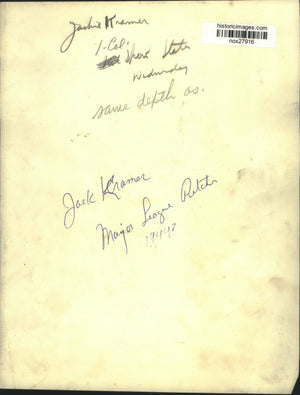 Jackie Kramer
historicimages.com
nox27916
1-Col.
Wednesday
same depth as.
Jack Kramer
Major League Pitcher
1944?